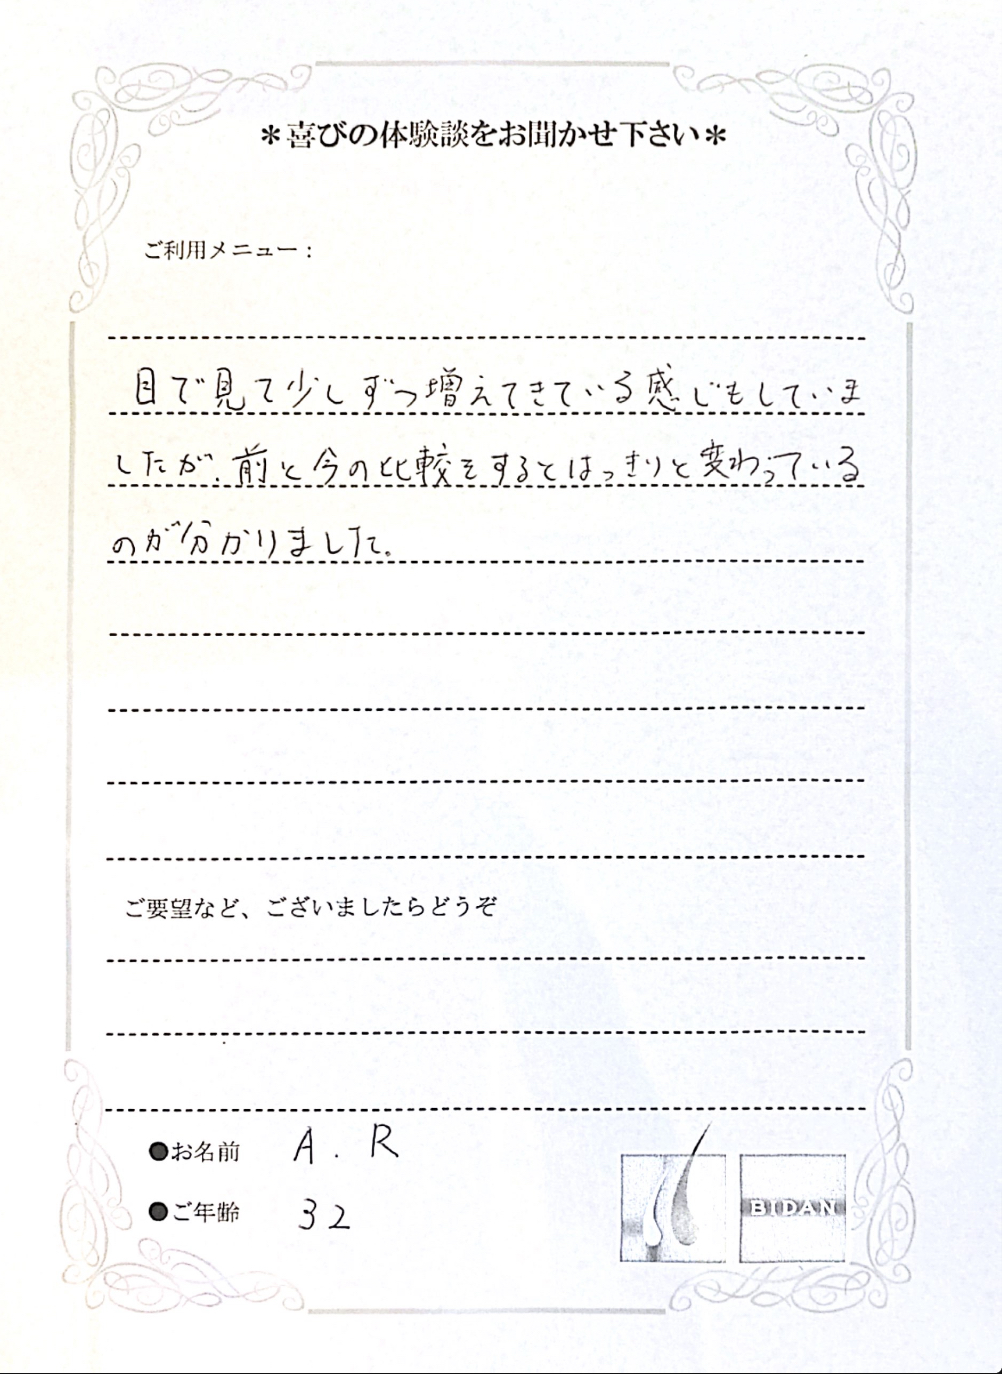 ＊喜びの体験談をお聞かせ下さい＊
ご利用メニュー：
目で見て少しずつ増えてきている感じもしていま
したが、前と今の比較をするとはっきりと変わっている
のが分かりました。
ご要望など、ございましたらどうぞ
●お名前 A.R
●ご年齢 32
BIDAN